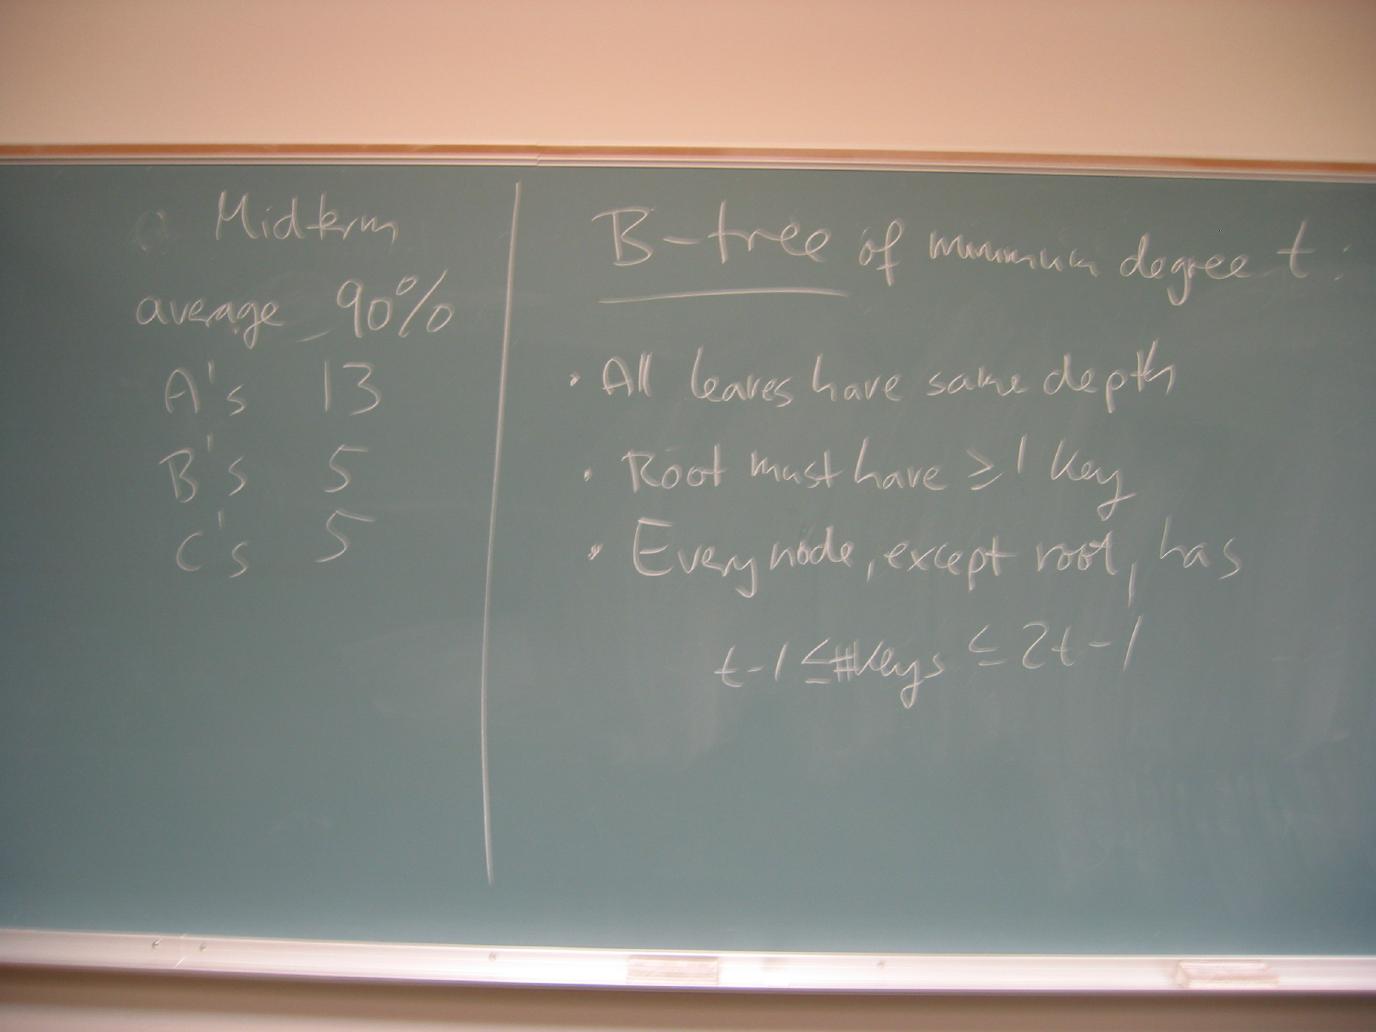 Midterm
average 90%
A's 13
B's 5
C's 5
B-tree of minimum degree t:
• All leaves have same depth
• Root must have ≥ 1 key
• Every node, except root, has
t-1 ≤ #keys ≤ 2t-1